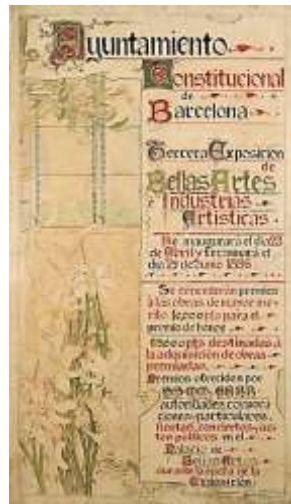 Ayuntamiento
Constitucional
de
Barcelona
Tercera Exposicion
de
Bellas Artes
e Industrias
Artisticas
Se inaugurará el dia 23
de Abril y terminará el
dia 25 de Junio 1896
Se concederán premios
á las obras de mayor me-
rito para el
premio de honor
destinadas á
la adquisicion de obras
premiadas.
Premios ofrecidos por
autoridades, corpora-
ciones, particulares,
fiestas, conciertos, 
en el
Palacio de
Bellas Artes
durante la época de la
Exposicion